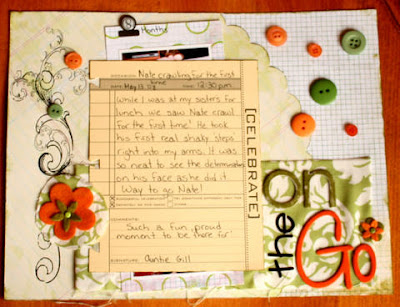 8 Months
OCCASION Nate crawling for the first
DATE May 13 TIME 12:30 p.m.
While I was at my sisters for
lunch we saw Nate crawl
for the first time! He took
his first real shaky 'steps'
right into my arms. It was
so neat to see the determination
on his face as he did it.
Way to go Nate!
COMMENTS:
Such a fun, proud
moment to be there for.
SIGNATURE Auntie Gill
[CELEBRATE]
on
the
Go